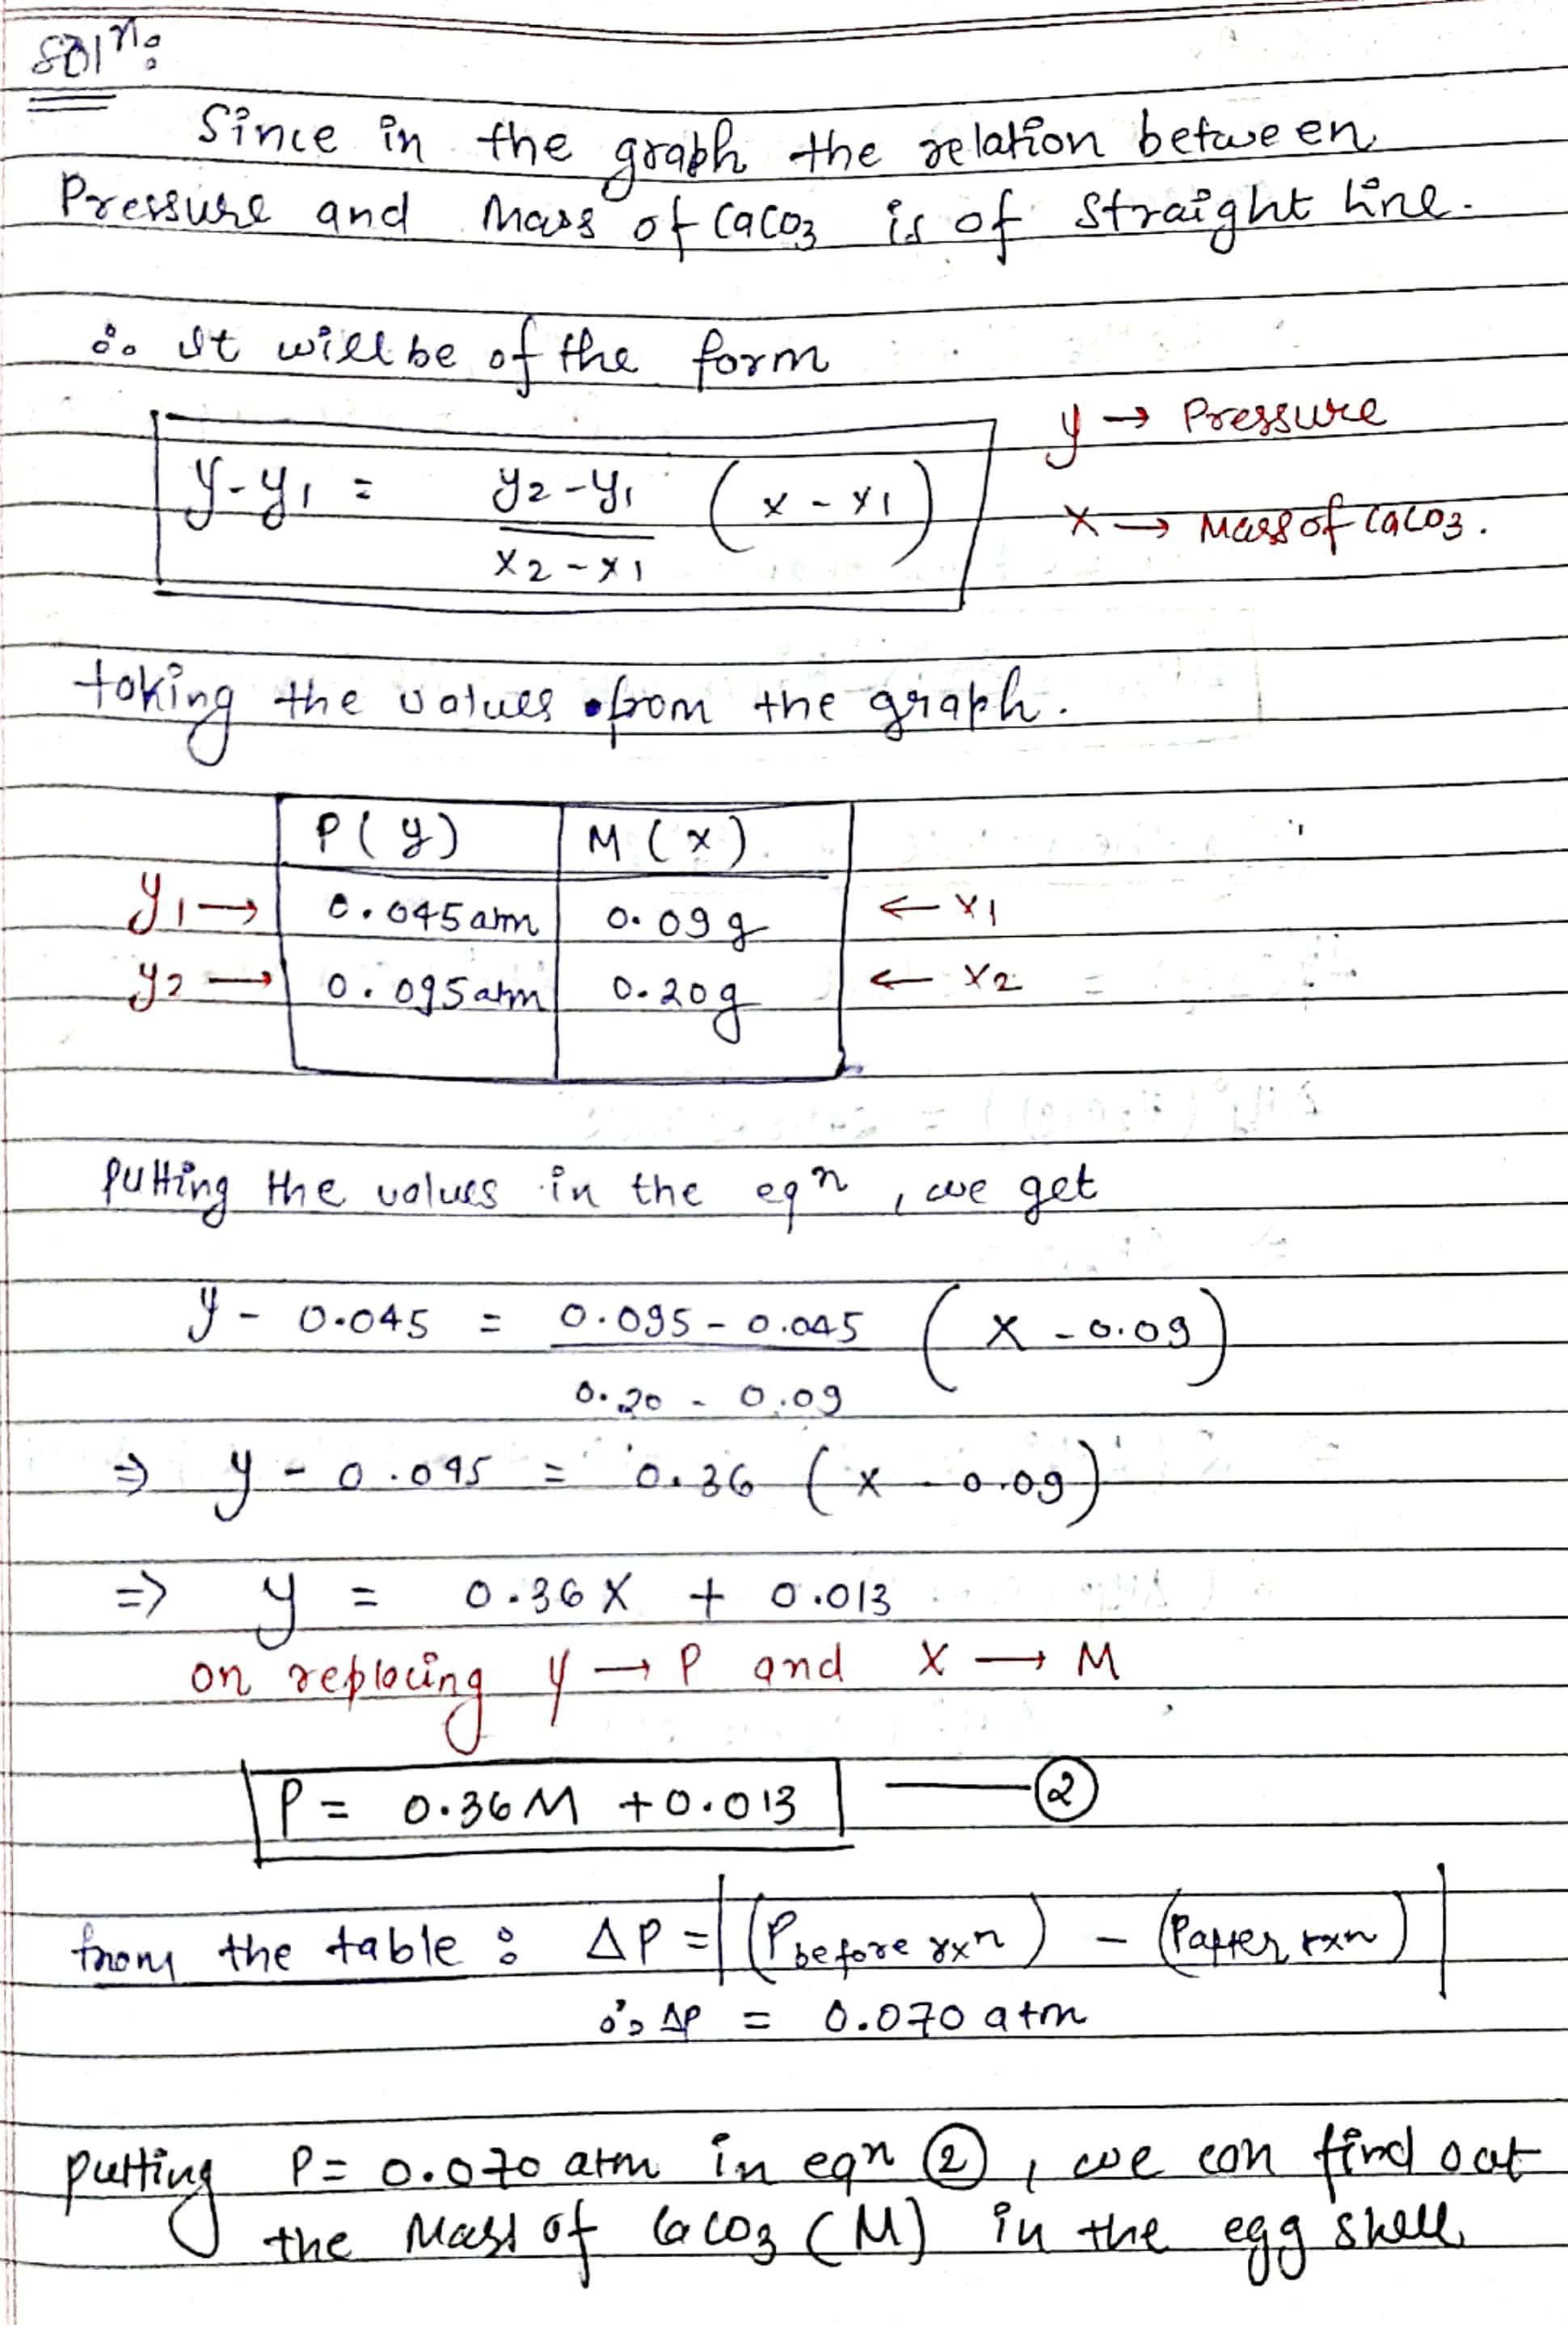 Solⁿ:
Since in the graph the relation between
Pressure and Mass of CaCO3 is of straight line.
∴ It will be of the form
y - y1 = y2 - y1 / x2 - x1 (x - x1)
y → Pressure
x → Mass of CaCO3.
taking the values from the graph.
P(y) M(x)
y1 → 0.045 atm 0.09 g ← x1
y2 → 0.095 atm 0.20 g ← x2
putting the values in the eqⁿ, we get
y - 0.045 = 0.095 - 0.045 / 0.20 - 0.09 (x - 0.09)
⇒ y - 0.045 = 0.36 (x - 0.09)
⇒ y = 0.36 x + 0.013
on replacing y → P and x → M
P = 0.36M + 0.013 — ②
from the table : ΔP = |(Pbefore rxn) - (Pafter rxn)|
∴ ΔP = 0.070 atm
putting P = 0.070 atm in eqn ②, we can find out
the Mass of CaCO3 (M) in the egg shell